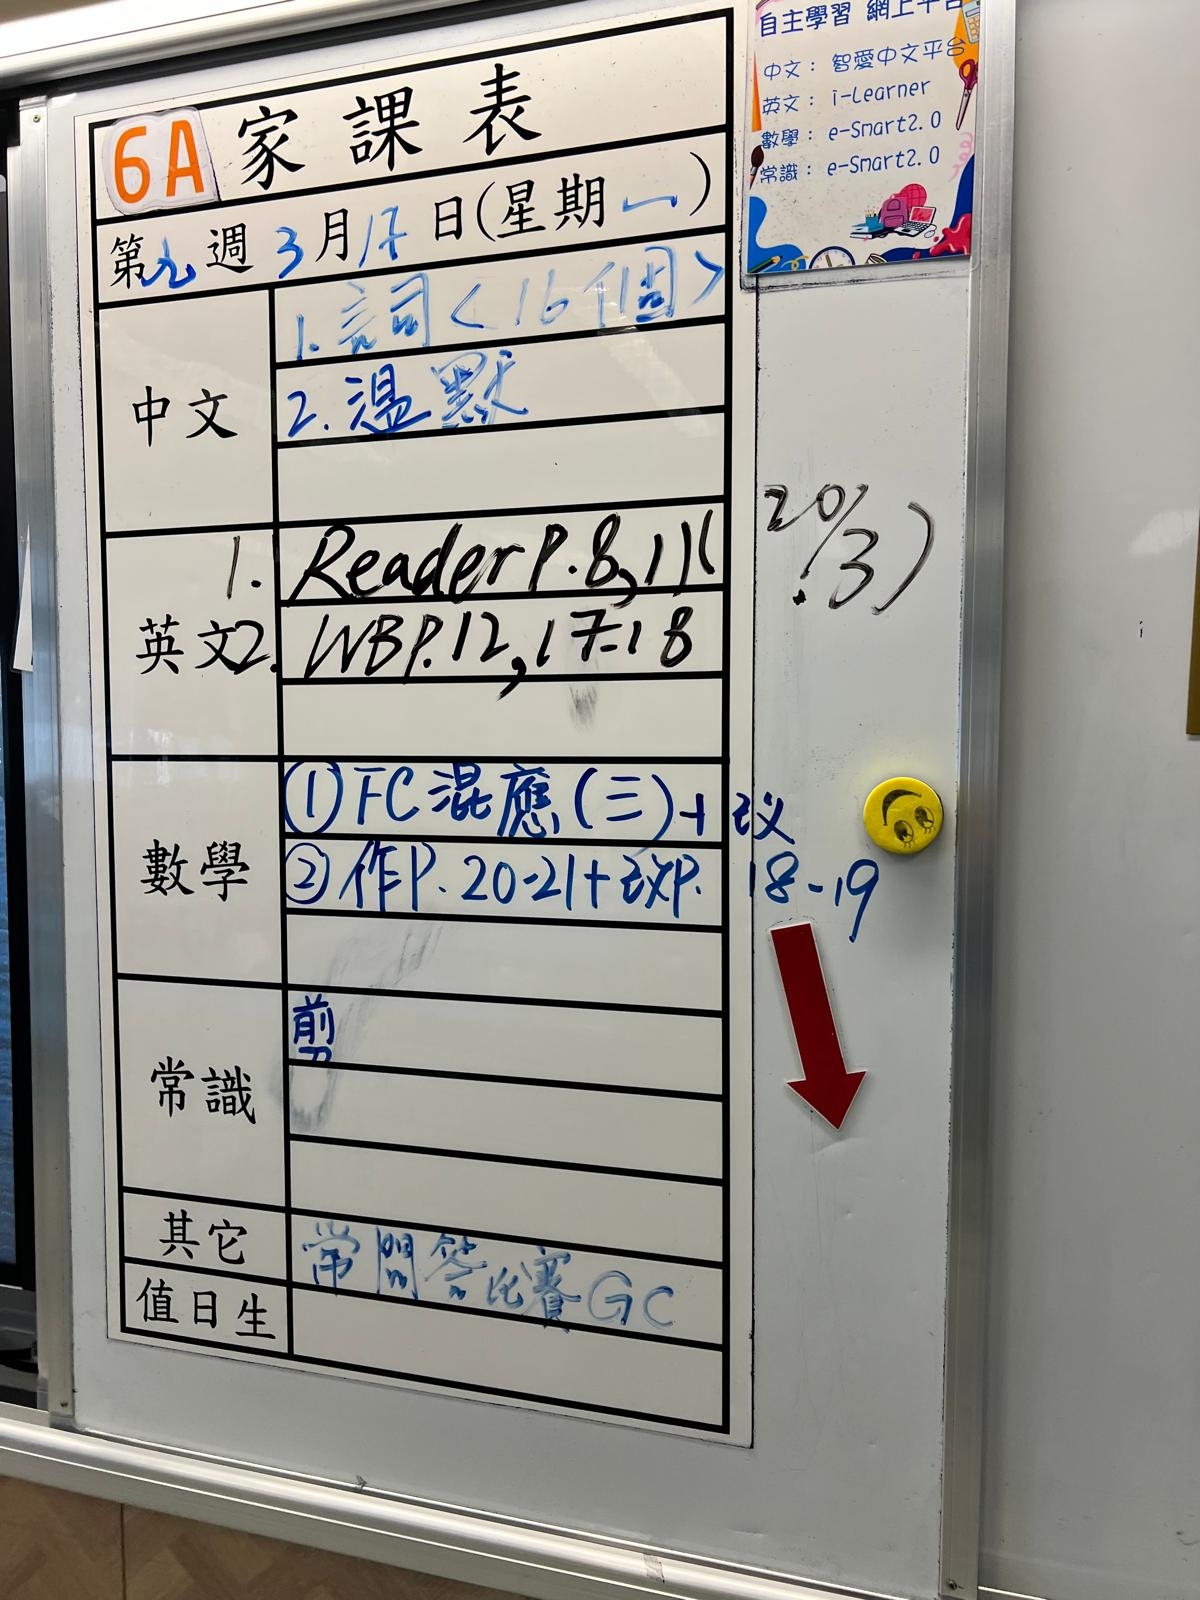 自主學習 網上平台
中文： 智愛中文平台
英文： i-Learner
數學： e-Smart2.0
常識： e-Smart2.0
6A 家課表
第九週 3月17日(星期一)
中文
1. 詞<16個>
2. 溫默
英文
1. Reader P.8, 11( 20/3)
2. WB P.12, 17-18
數學
① FC 混應(三)+
② 作P. 20-21+ P. 18-19
常識
剪
其它
常問答比賽GC
值日生